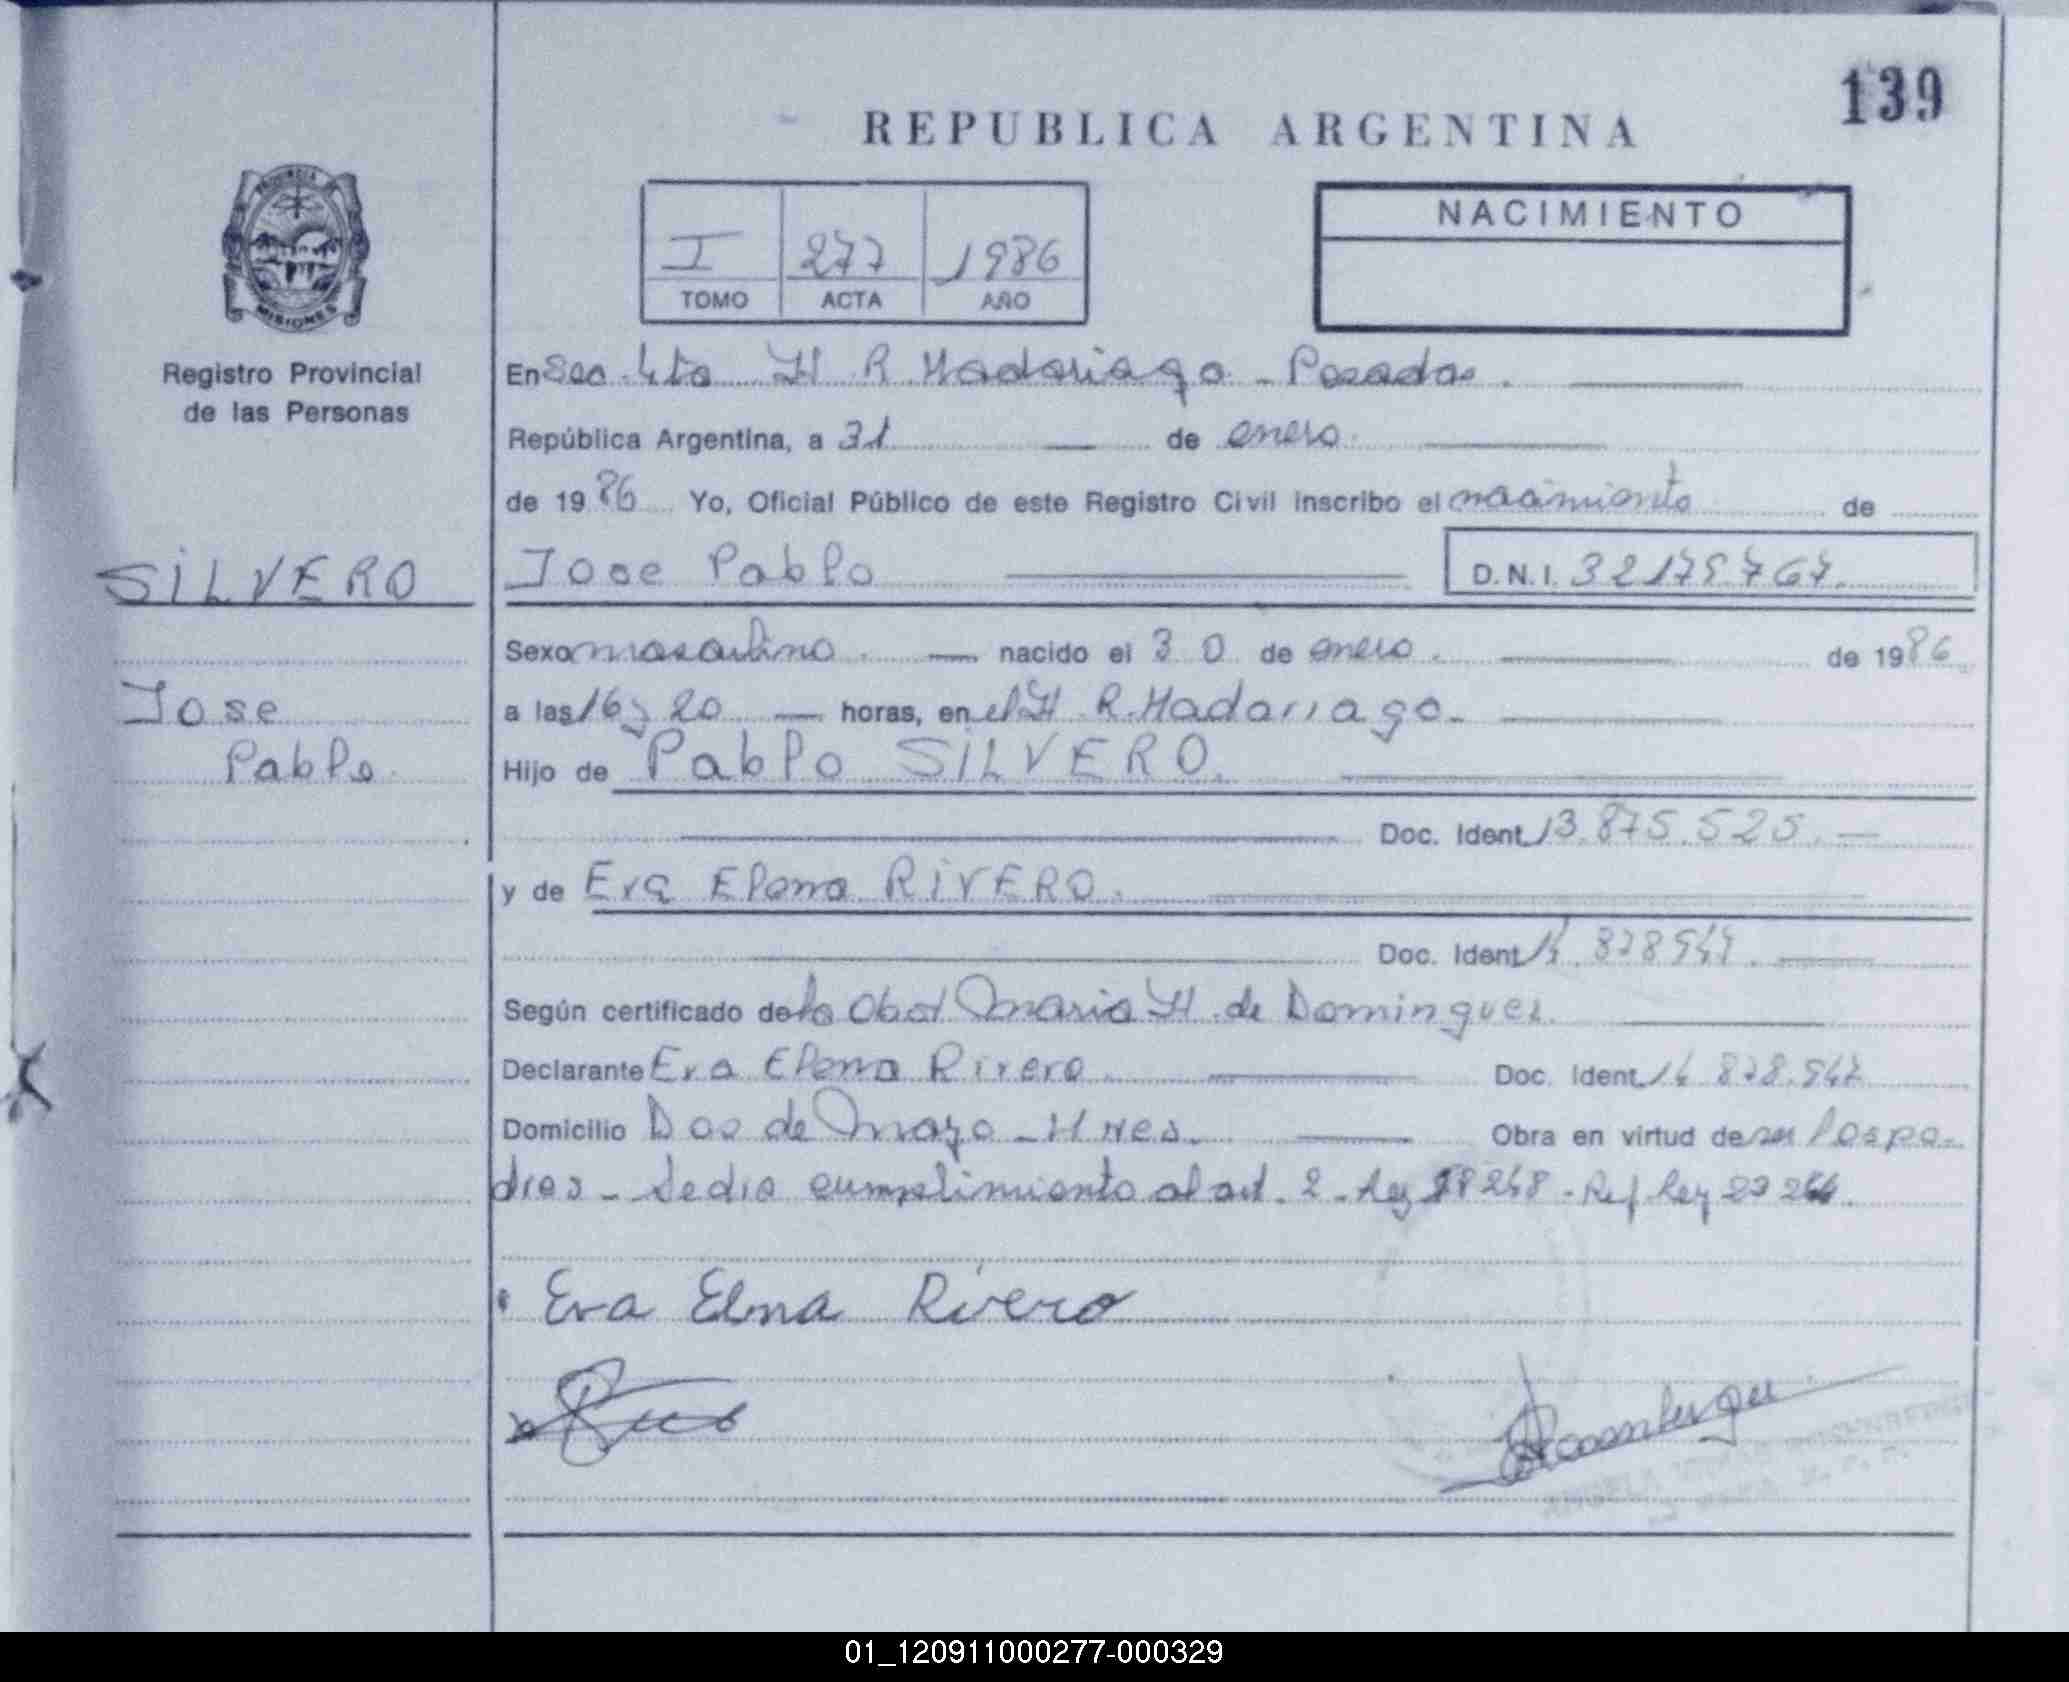 139
REPUBLICA ARGENTINA
NACIMIENTO
I 277 1986
TOMO ACTA AÑO
PROVINCIA DE
MISIONES
Registro Provincial
de las Personas
En Sec. 4ta H R Madariaga - Posadas.
República Argentina, a 31 de enero
de 1986 Yo, Oficial Público de este Registro Civil inscribo el nacimiento de
SILVERO
Jose Pablo D.N.I. 32179767
Sexo masculino. nacido el 30 de enero. de 1986
Jose
Pablo
a las 16 y 20 horas, en el H R. Madariaga.
Hijo de Pablo SILVERO.
Doc. Ident. 13.875.525.
y de Eva Elena RIVERO.
Doc. Ident. 14.828947.
Según certificado de la Obst Maria H. de Dominguez.
Declarante Eva Elena Rivero Doc. Ident. 14 828.947
Domicilio Dos de Mayo - Mnes. Obra en virtud de ser los pa-
dres - Se dio cumplimiento al art. 2 - Ley 18248 - Ref Ley
Eva Elena Rivero
ANGELA
01_120911000277-000329